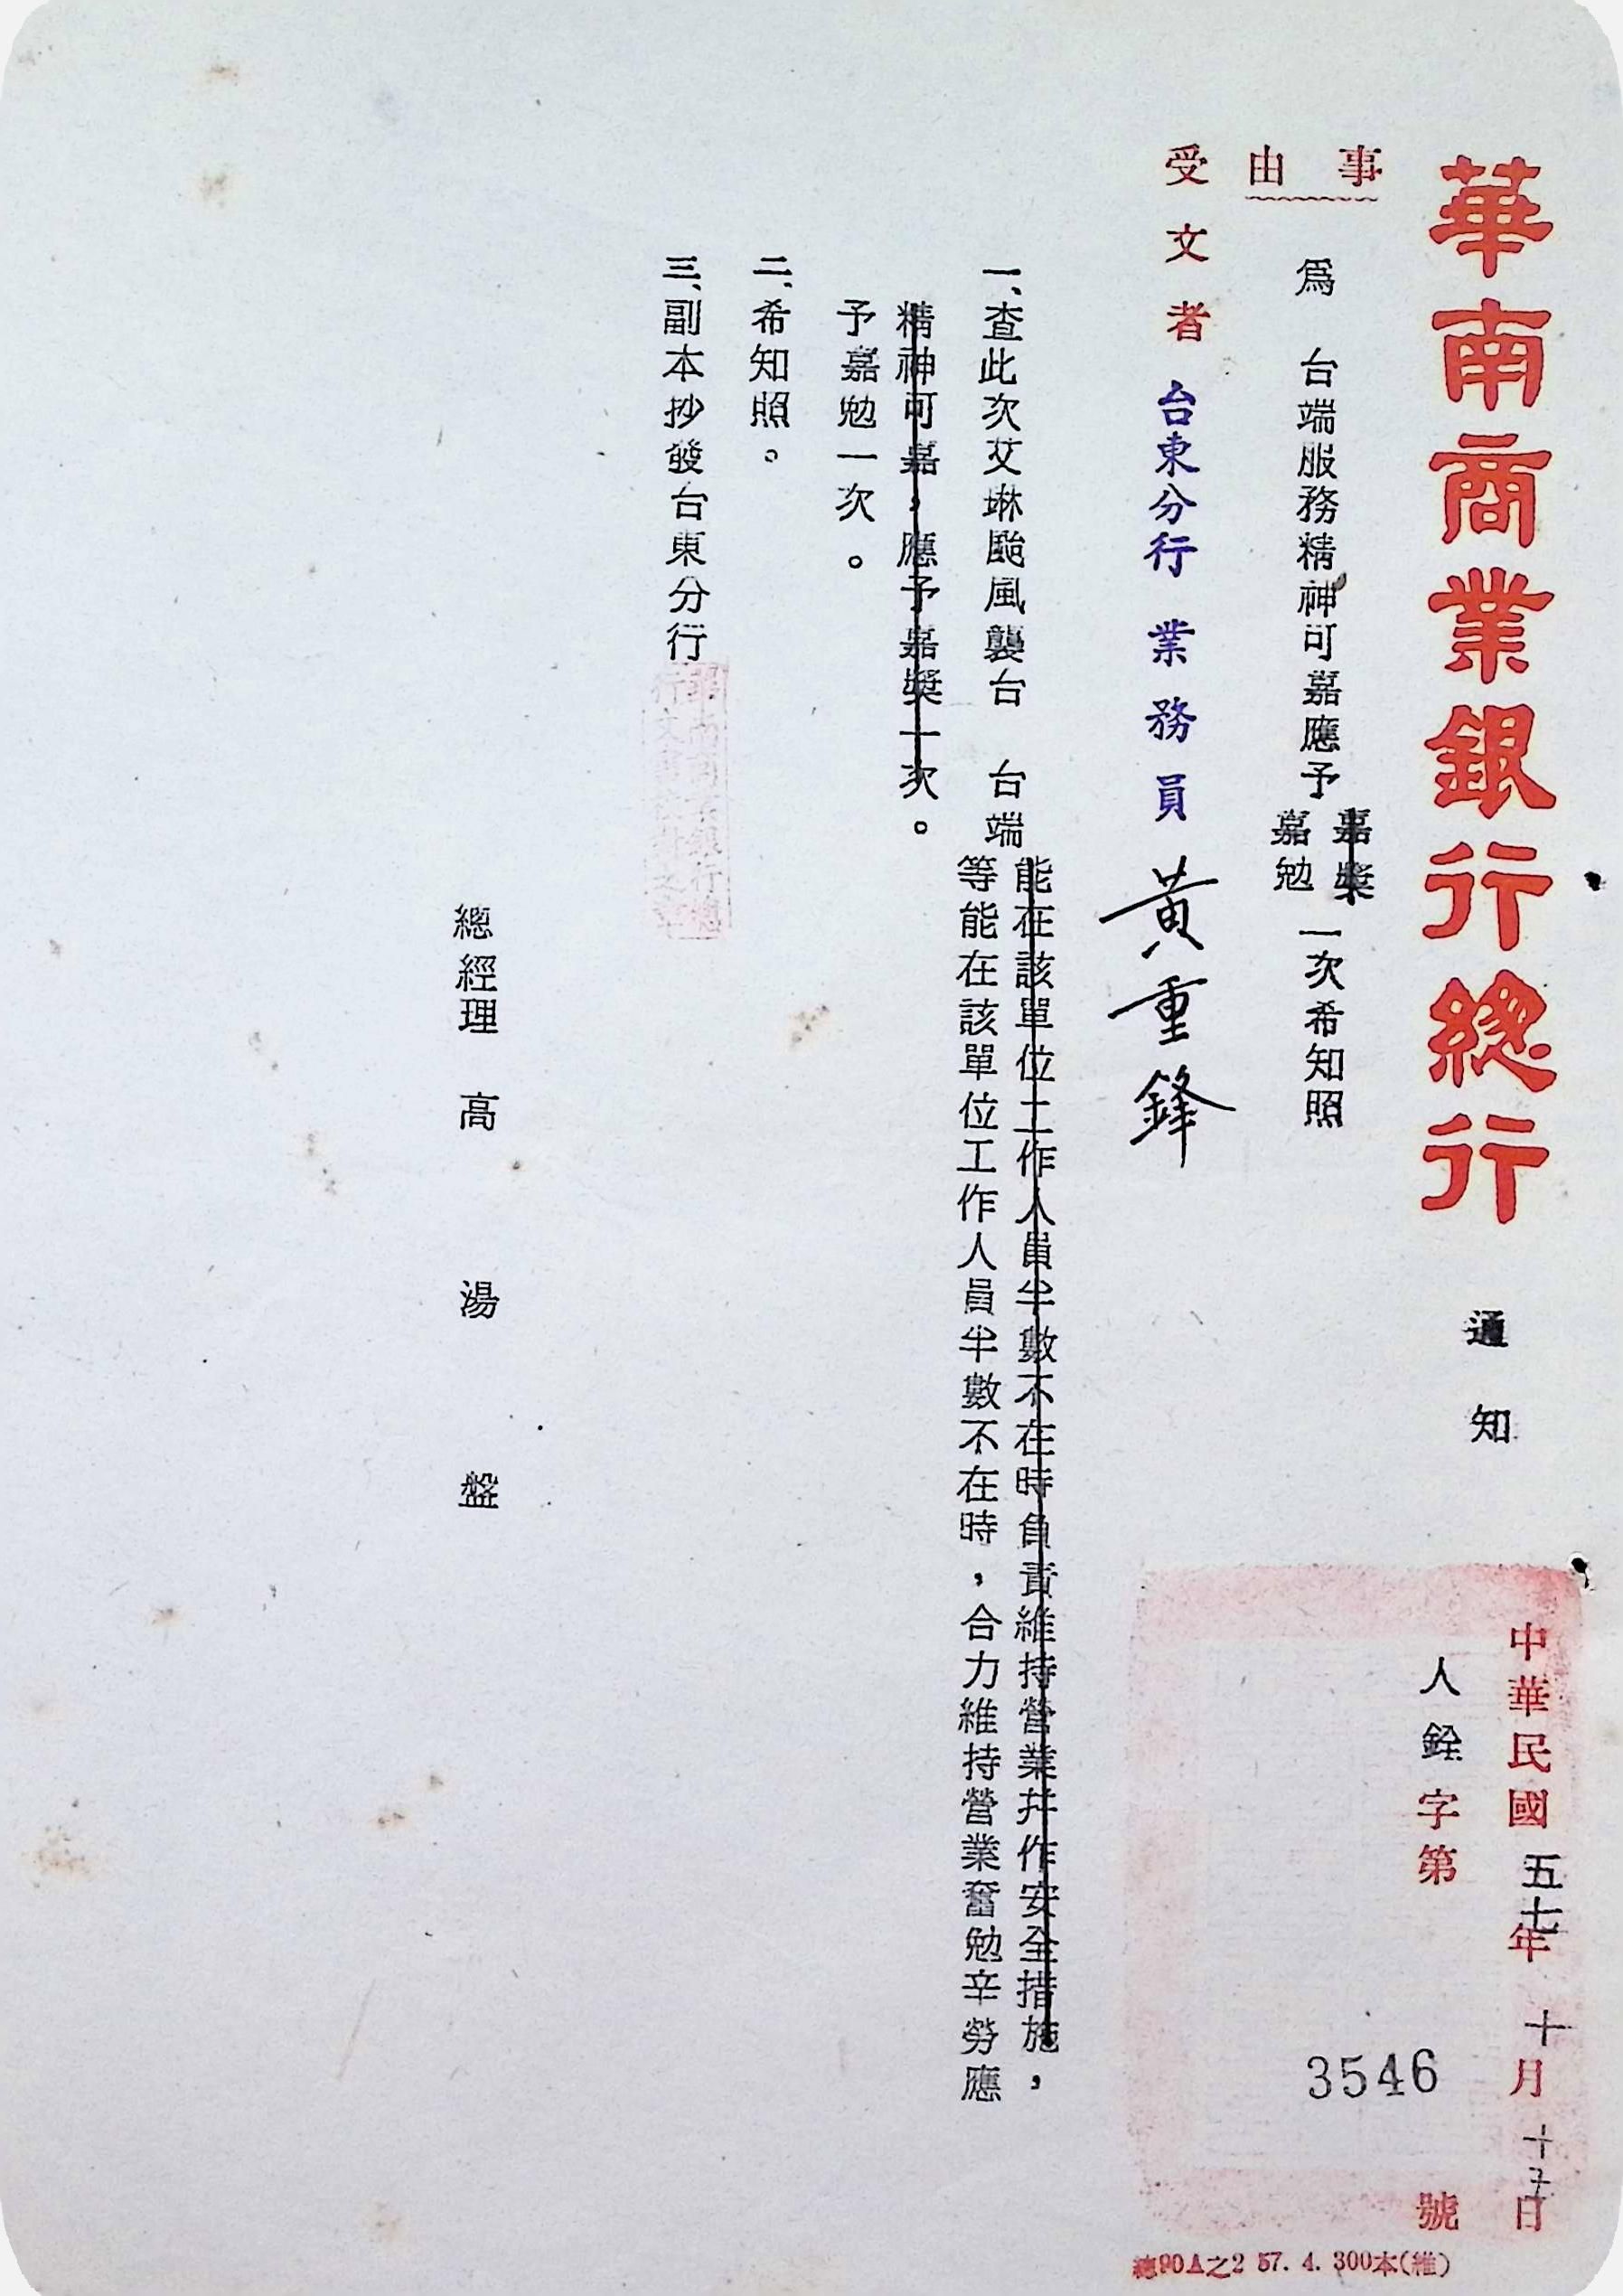 華南商業銀行總行 通知
中華民國五七年十月十五日
人銓字第3546號
事由
為 台端服務精神可嘉應予嘉獎嘉勉一次希知照
受文者 台東分行 業務員 黃重鋒
一、查此次艾琳颱風襲台 台端
能在該單位工作人員半數不在時負責維持營業并作安全措施，
等能在該單位工作人員半數不在時，合力維持營業奮勉辛勞應
精神可嘉，應予嘉獎一次。
予嘉勉一次。
二、希知照。
三、副本抄發台東分行
總經理 高湯盤
總90A之2 57. 4. 300本(維)